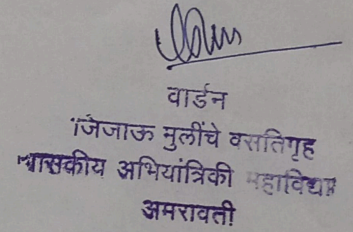 वार्डन
जिजाऊ मुलींचे वसतिगृह
शासकीय अभियांत्रिकी महाविद्या
अमरावती